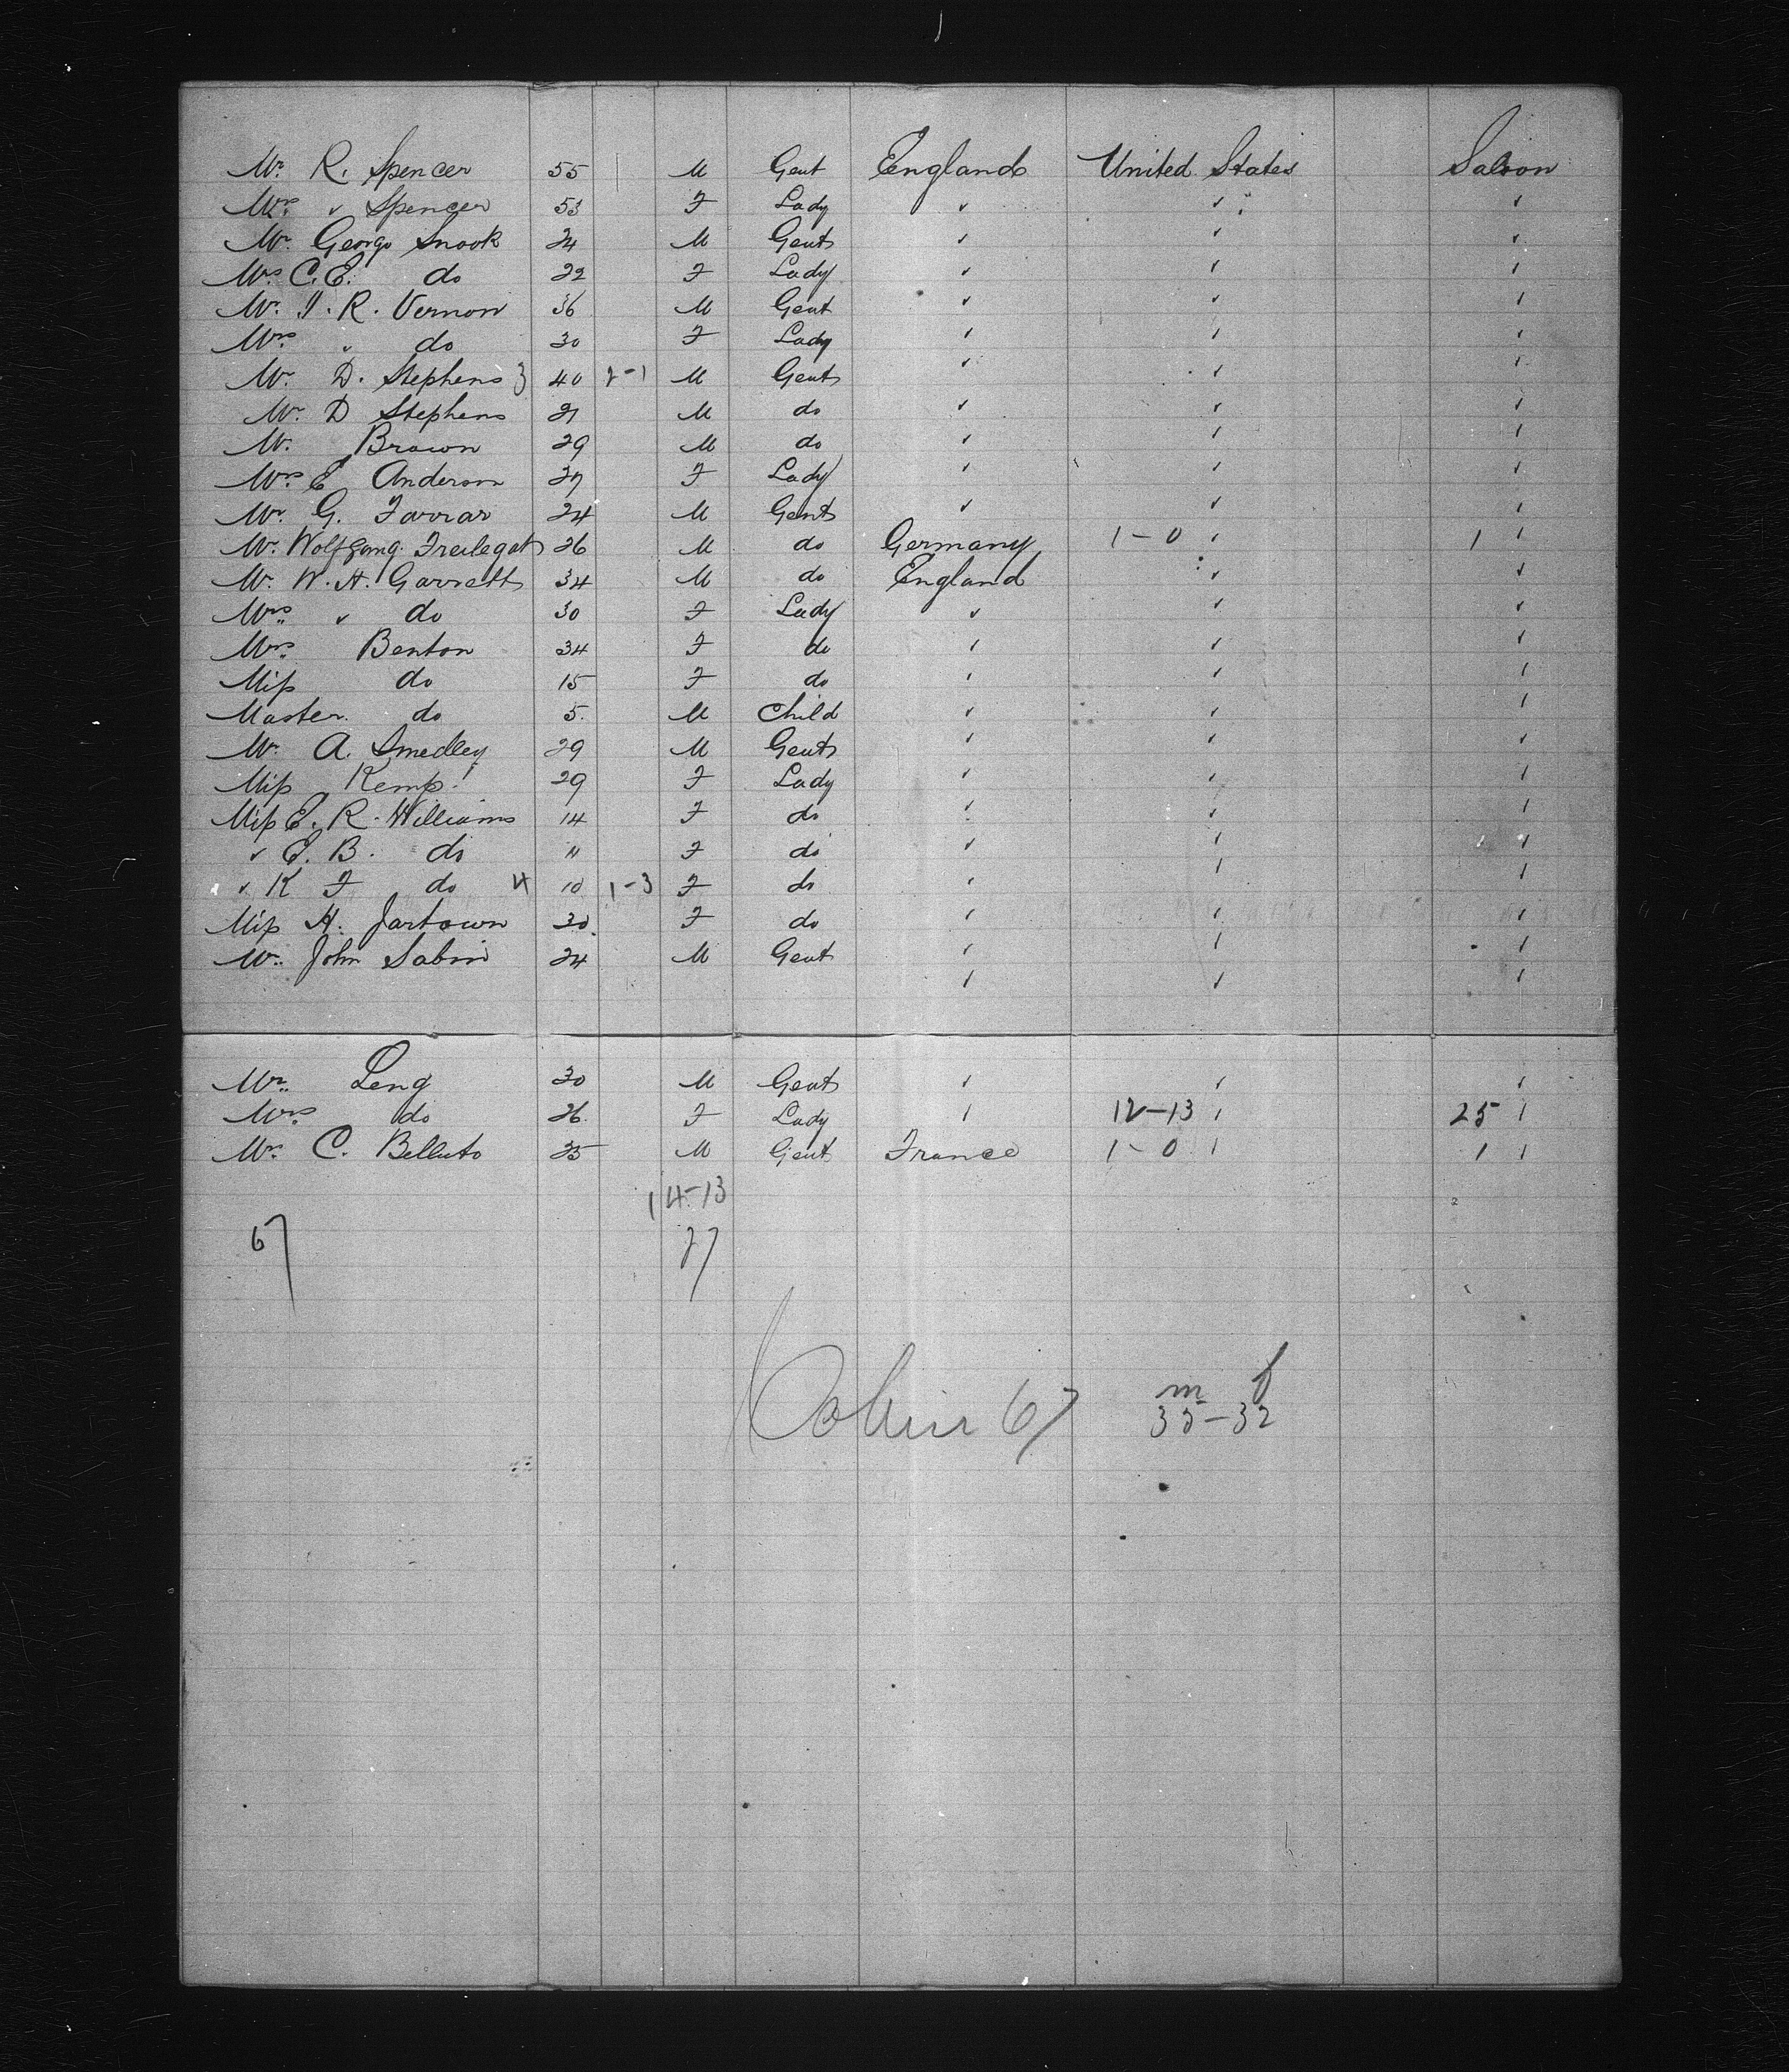 Mr. R. Spencer 55 M Gent England United States Saloon
Mrs. " Spencer 53 F Lady " " "
Mr. George Snook 24 M Gent " " "
Mrs C. E. do 22 F Lady " " "
Mr. J. R. Vernon 36 M Gent " " "
Mrs " do 30 F Lady " " "
Mr. D. Stephens 3 40 2-1 M Gent " " "
Mr. D Stephens 21 M do " " "
Mr. Brown 29 M do " " "
Mrs E Anderson 27 F Lady " " "
Mr. G. Farrar 24 M Gent " " "
Mr. Wolfgang Freilegath 26 M do Germany 1-0 " 1 "
Mr. W. H. Garrett 34 M do England " "
Mrs. " do 30 F Lady " " "
Mrs. Benton 34 F do " " "
Miss do 15 F do " " "
Master. do 5. M Child " " "
Mr. A. Smedley 29 M Gent " " "
Miss Kemp 29 F Lady " " "
Miss E. R. Williams 14 F do " " "
" E. B. do 11 F do " " "
" K F do 4 10 1-3 F do " " "
Miss H. Jartown 30 F do " " "
Mr. John Sabin 24 M Gent " " "
" " "
Mr. Leng 30 M Gent " " "
Mrs do 26 F Lady " 12-13 " 25 "
Mr. C. Belluto 25 M Gent France 1-0 " 1 "
14-13
67 27
m f
Cabin 67 35-32